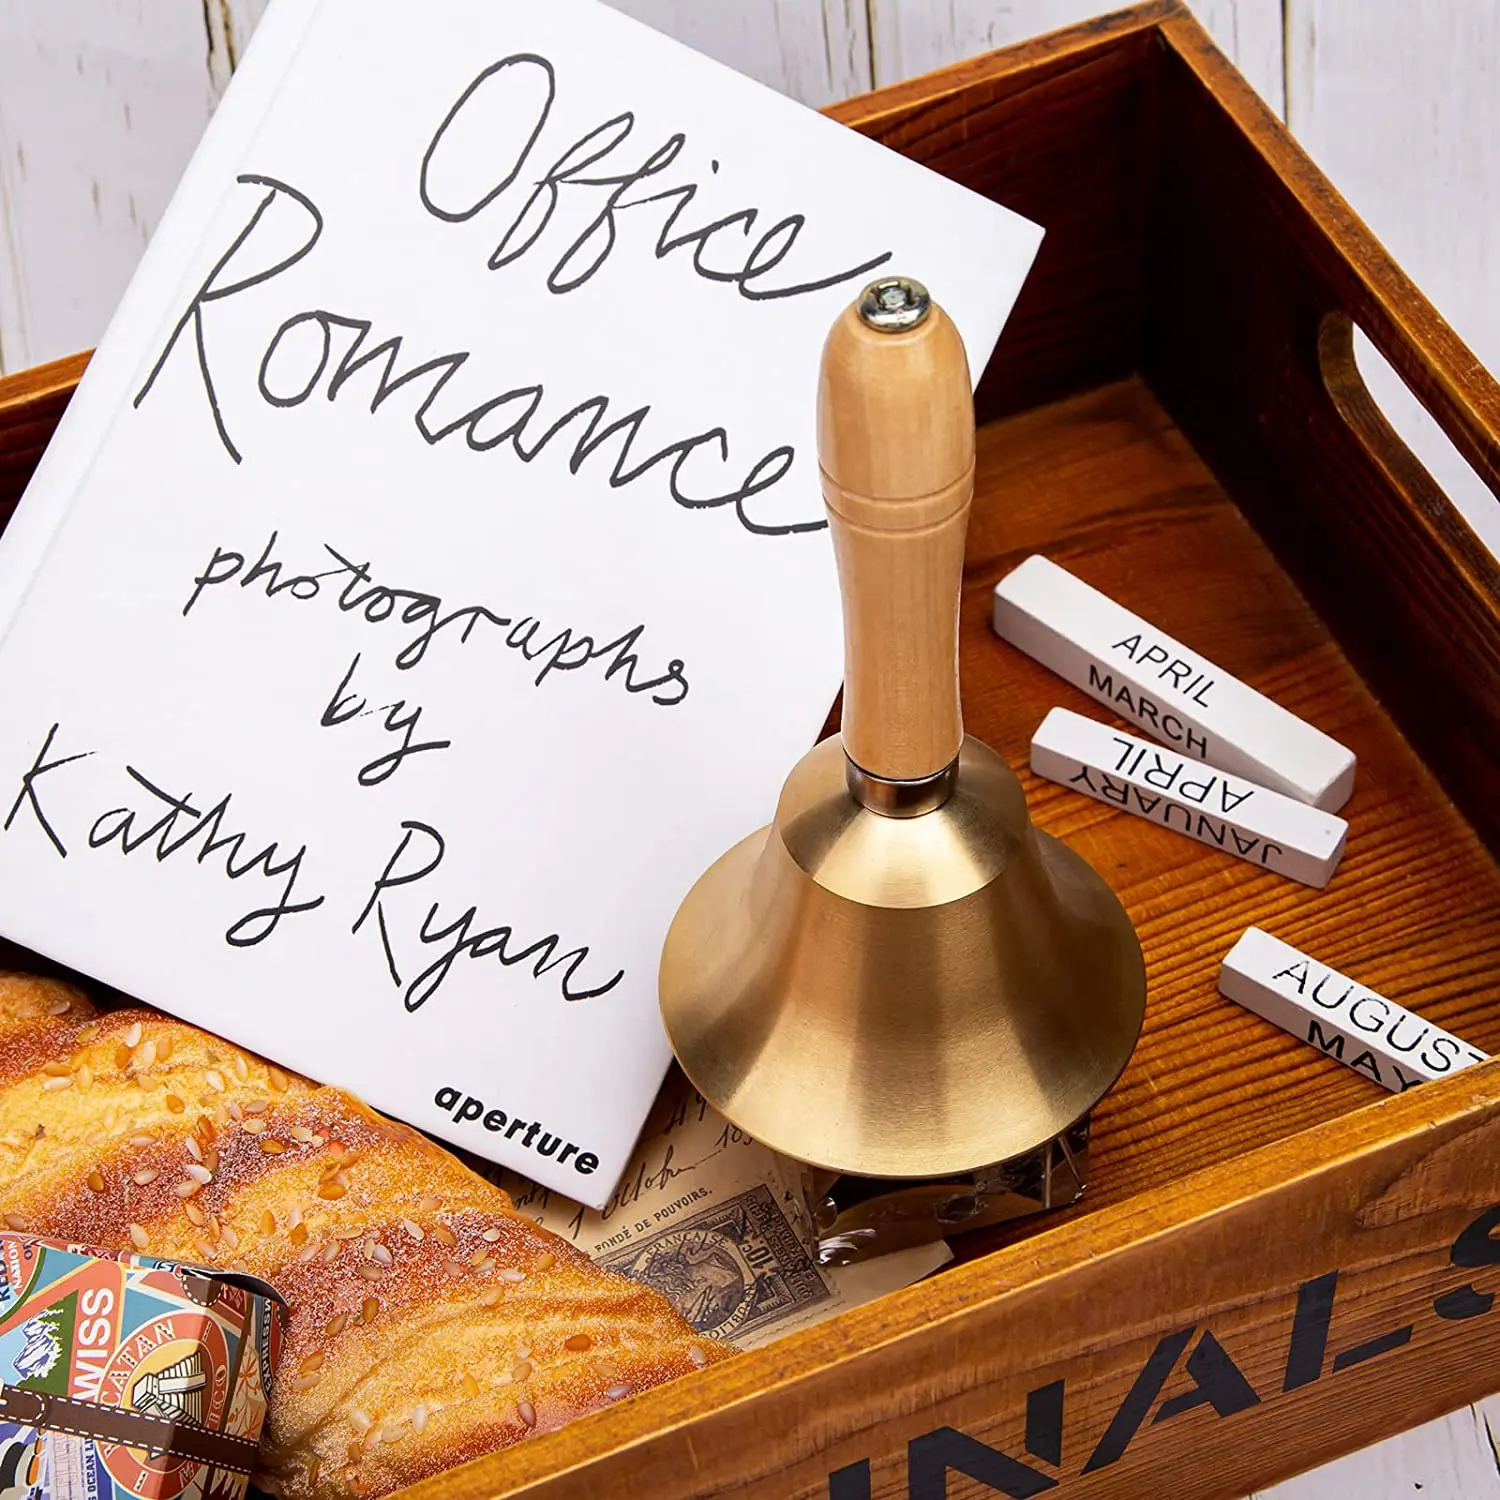 Office
Romance
photographs
by
Kathy Ryan
aperture
APRIL
MARCH
APRIL
JANUARY
AUGUST
MAY
FONDÉ DE POUVOIRS.
FRANÇAISE
10
WISS
CATAN
OCEAN
NALS